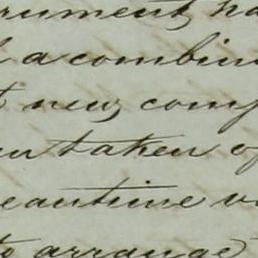 rument ha
a combin
new comp
en taken of
eantime w
to arrange